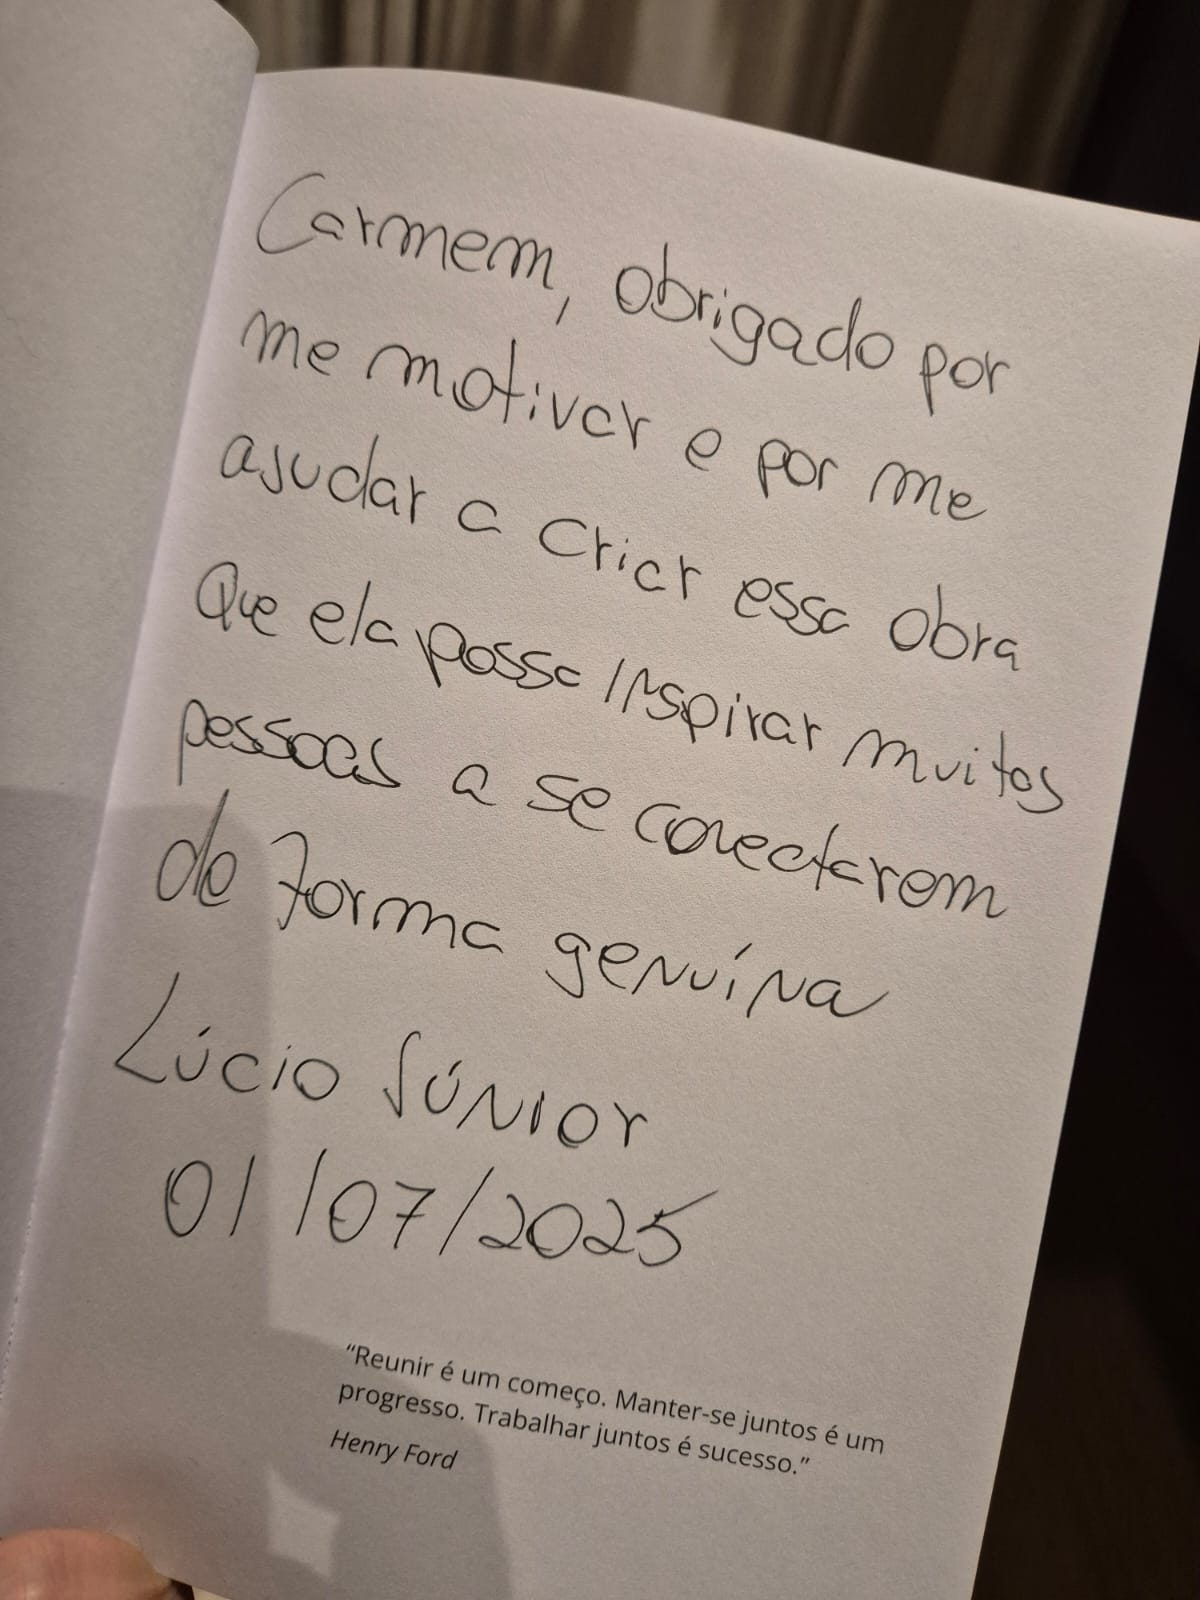 Carmem, obrigado por
me motivar e por me
ajudar a criar essa obra
Que ela possa inspirar muitas
pessoas a se conectarem
de forma genuína
Lúcio Júnior
01/07/2025
“Reunir é um começo. Manter-se juntos é um
progresso. Trabalhar juntos é sucesso.”
Henry Ford